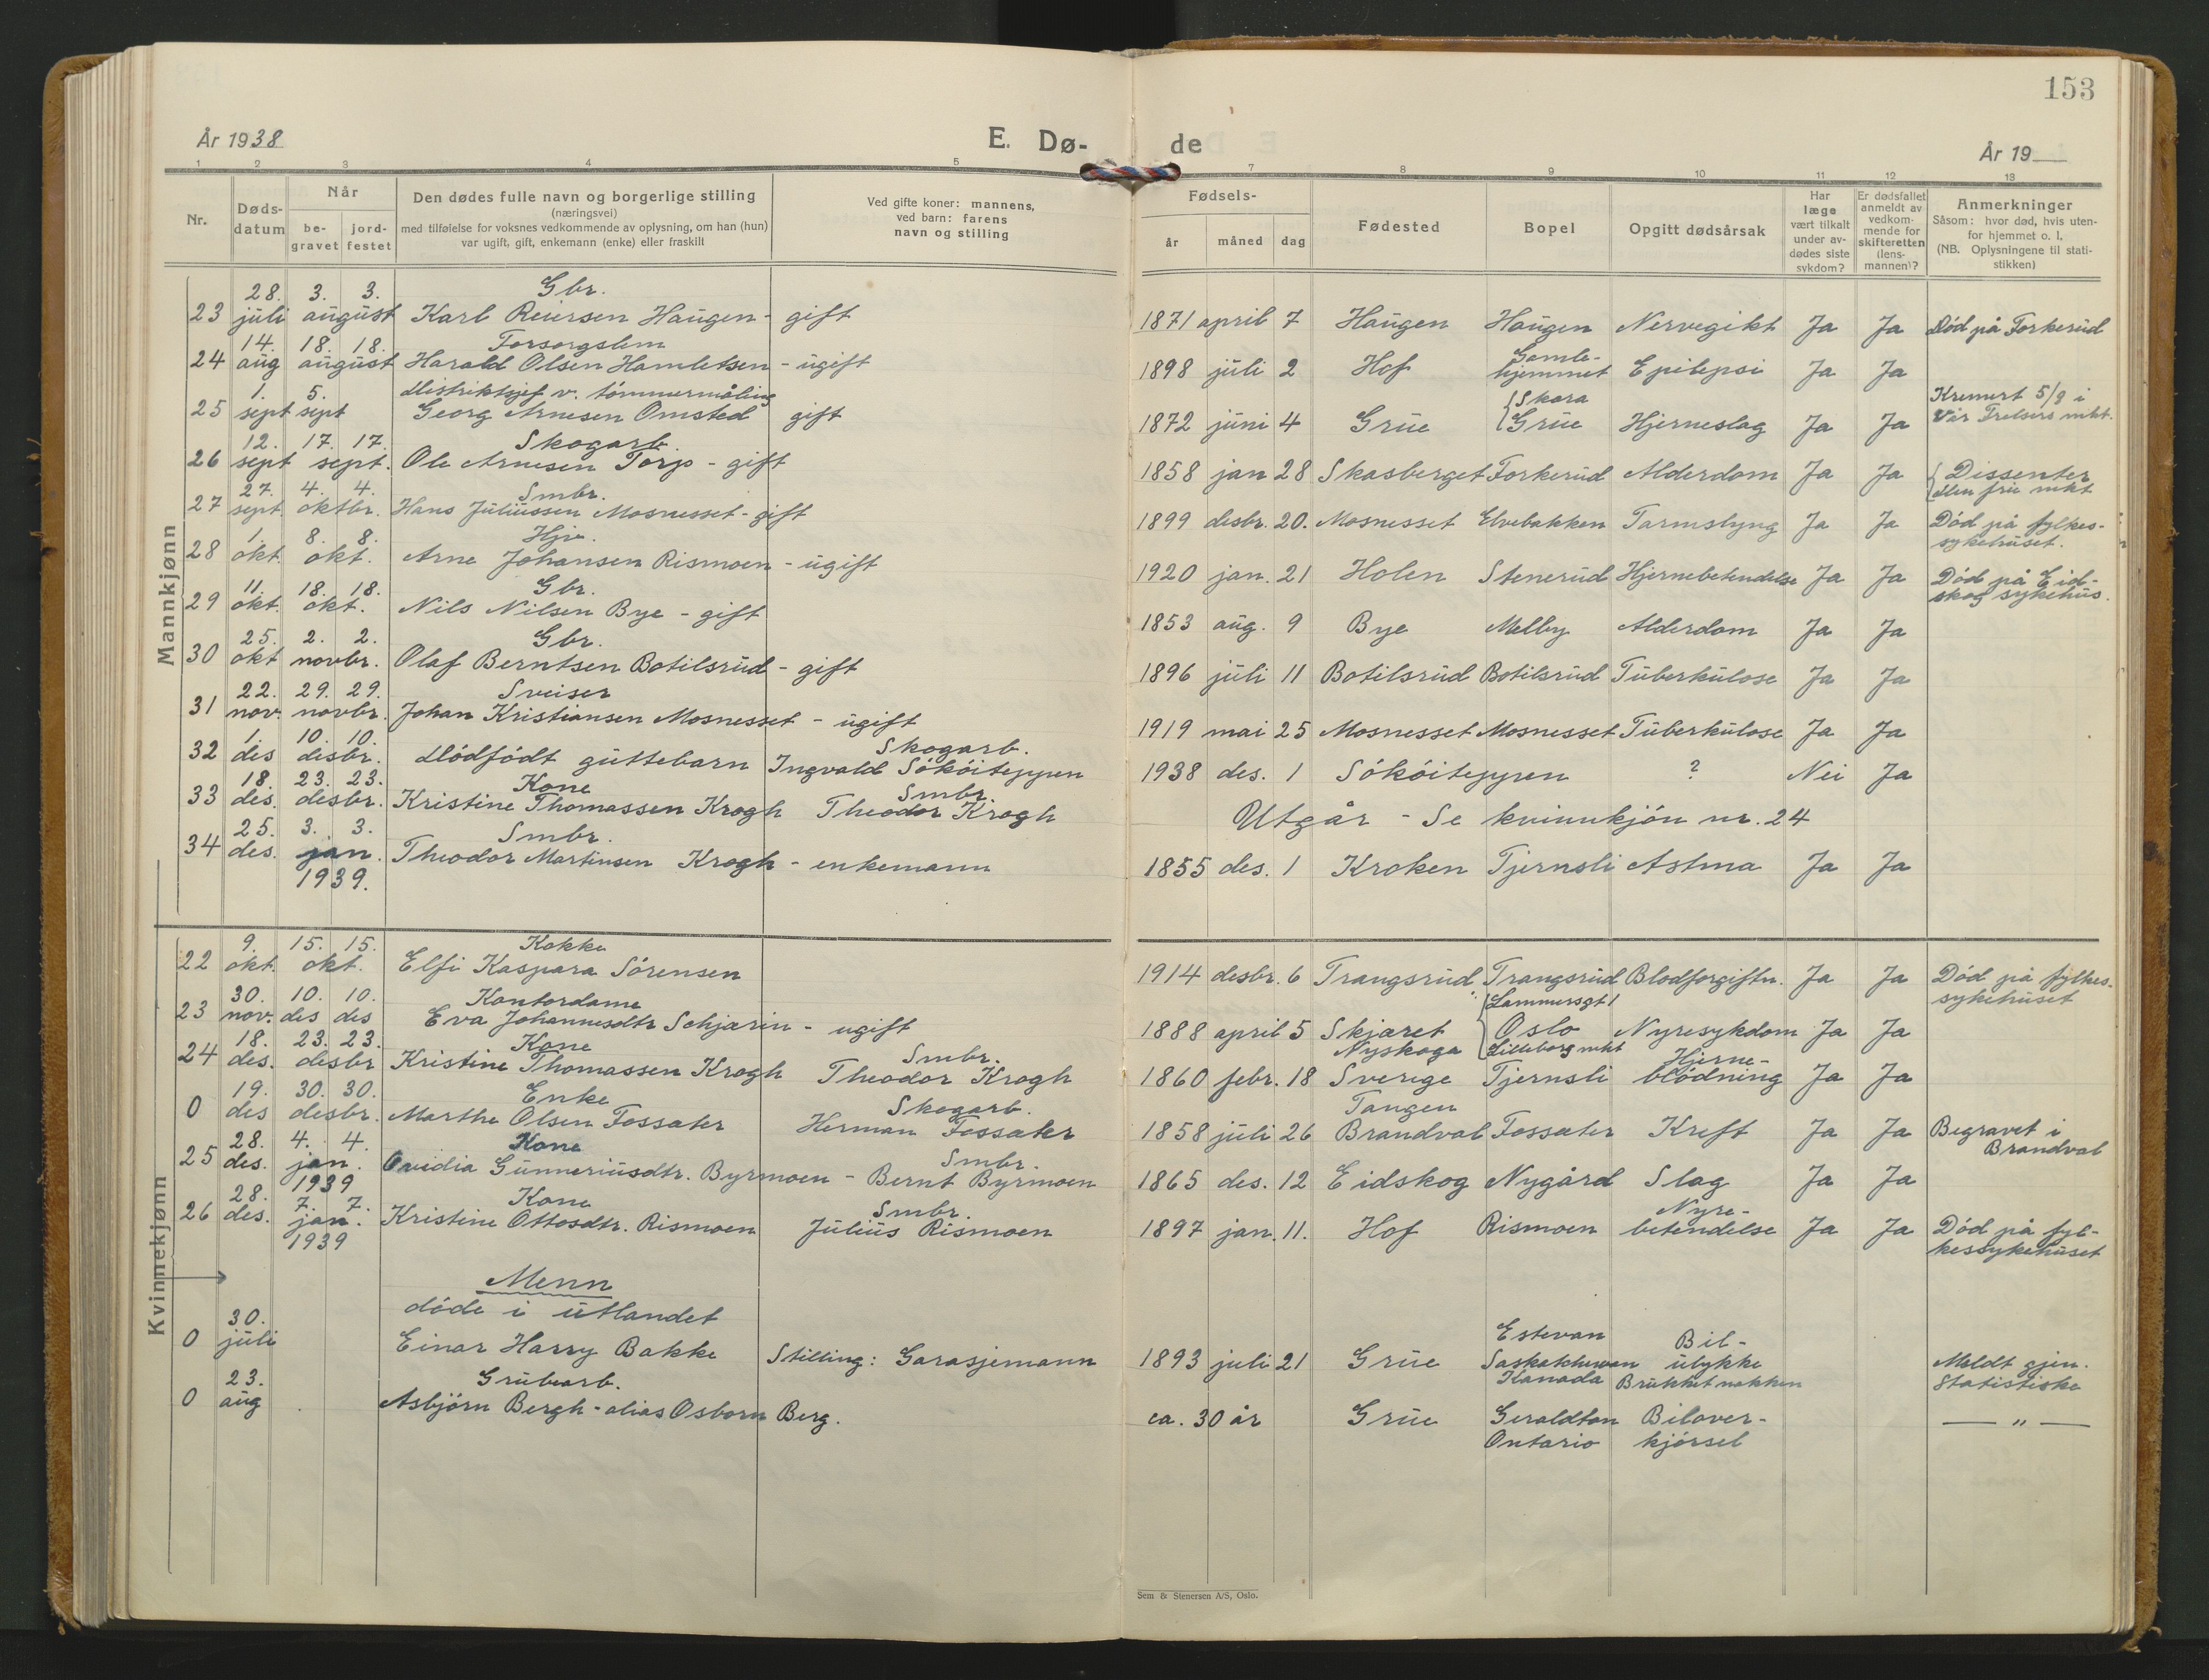 153
År 1938
E. Dø-
de
År 19
1 2 3 4 5 7 8 9 10 11 12 13
Nr.
Døds-
datum
Når
be-
gravet
jord-
festet
Den dødes fulle navn og borgerlige stilling
(næringsvei)
med tilføielse for voksnes vedkommende av oplysning, om han (hun)
var ugift, gift, enkemann (enke) eller fraskilt
Ved gifte koner: mannens,
ved barn: farens
navn og stilling
Fødsels-
år måned dag
Fødested
Bopel
Opgitt dødsårsak
Har
læge
vært tilkalt
under av-
dødes siste
sykdom?
Er dødsfallet
anmeldt av
vedkom-
mende for
skifteretten
(lens-
mannen)?
Anmerkninger
Såsom: hvor død, hvis uten-
for hjemmet o. l,
(NB. Oplysningene til stati-
stikken)
Mannkjønn
28. 3. 3. Gbr.
23 juli august Karl Reiersen Haugen - gift 1871 april 7 Haugen Haugen Nervegikt Ja Ja Död på Forkerud
14. 18. 18. Forsorgslem Gamle-
24 aug august Harald Olsen Hamletsen - ugift 1898 juli 2 Hof hjemmet Epilepsi Ja Ja
1. 5. Distriktsjef v. tömmermåling Skara Kremert 5/9 i
25 sept sept Georg Arnesen Omsted gift 1872 juni 4 Grue Grue Hjerneslag Ja Ja Vår Frelsers mkt.
12. 17. 17. Skogarb.
26 sept sept. Ole Arnesen Torp - gift 1858 jan 28 Skasberget Forkerud Alderdom Ja Ja Dissenter
Den frie mkt
27. 4. 4. Smbr.
27 sept. oktbr. Hans Juliussen Mosnesset - gift 1899 desbr. 20. Mosnesset Elvebakken Tarmslyng Ja Ja Död på fylkes-
sykehuset.
1. 8. 8.
28 okt. okt. Arne Johansen Rismoen - ugift 1920 jan. 21 Holen Stenerud Hjernebetendelse Ja Ja Död på Eid-
skog sykehus.
11. 18. 18. Gbr.
29 okt. okt. Nils Nilsen Bye - gift 1853 aug. 9 Bye Melby Alderdom Ja Ja
25. 2. 2. Gbr.
30 okt novbr. Olaf Berntsen Botilsrud - gift 1896 juli 11 Botilsrud Botilsrud Tuberkulose Ja Ja
22. 29. 29. Sveiser
31 nov. novbr. Johan Kristiansen Mosnesset - ugift 1919 mai 25 Mosnesset Mosnesset Tuberkulose Ja Ja
1. 10. 10. Skogarb.
32 des disbr. Dödfödt guttebarn Ingvald Sököitepyren 1938 des. 1 Sököitepyren ? Nei Ja
18. 23. 23. Kone Smbr.
33 des. desbr. Kristine Thomassen Krogh Theodor Krogh Utgår - Se kvinnkjön nr. 24
25. 3. 3. Smbr.
34 des. jan. Theodor Martinsen Krogh - enkemann 1855 des. 1 Kroken Tjernsli Astma Ja Ja
1939.
Kvinnekjønn
9. 15. 15. Kokke
22 okt. okt. Elfi Kaspara Sörensen 1914 desbr. 6 Trangsrud Trangsrud Blodforgiftn. Ja Ja Död på fylkes-
sykehuset
30. 10. 10. Kontordame Lammersgt 1
23 nov. des des Eva Johannesdtr Schjærin - ugift 1888 april 5 Skjæret Oslo Nyresykdom Ja Ja
Lilleborg mkt
18. 23. 23. Kone Smbr. Nyskoga Hjerne-
24 des. desbr Kristine Thomassen Krogh Theodor Krogh 1860 febr. 18 Sverige Tjernsli blödning Ja Ja
19. 30. 30. Enke Skogarb. Tangen
0 des desbr. Marthe Olsen Fossæter Herman Fossæter 1858 juli 26 Brandval Fossæter Kreft Ja Ja Begravet i
Brandval
28. 4. 4. Kone Smbr.
25 des. jan. Ovidia Gunneriusdtr. Byrmoen - Bernt Byrmoen 1865 des. 12 Eidskog Nygård Slag Ja Ja
1939
28. 7. 7. Kone Smbr. Nyre-
26 des. jan. Kristine Ottosdtr. Rismoen Julius Rismoen 1897 jan. 11. Hof Rismoen betendelse Ja Ja Död på fyl-
kessykehuset
1939
Menn
döde i utlandet
30. Estevan Bil-
0 juli Einar Harry Bakke Stilling: Garasjemann 1893 juli 21 Grue Saskatchewan ulykke Meldt gjen.
Kanada Brukket nakken Statistiske
23. Grubearb.
0 aug Asbjörn Bergh - alias Osborn Berg. ca. 30 år Grue Geraldton Bilover- — " —
Ontario kjörsel
Sem & Stenersen A/S, Oslo.